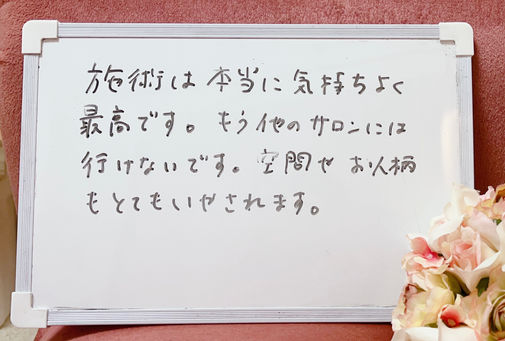 施術は本当に気持ちよく
最高です。もう他のサロンには
行けないです。空間やお人柄
もとてもいやされます。